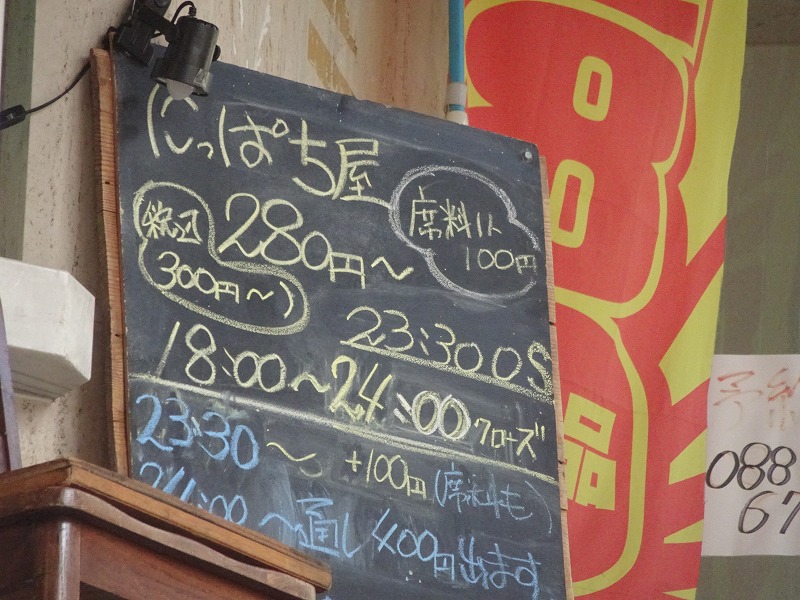 にっぱち屋
席料1人
100円
税込 280円〜
300円〜)
23:30 OS
18:00〜24:00 クローズ
23:30〜 +100円(席料も)
24:00〜通し400円出ます
品
予約
088
67